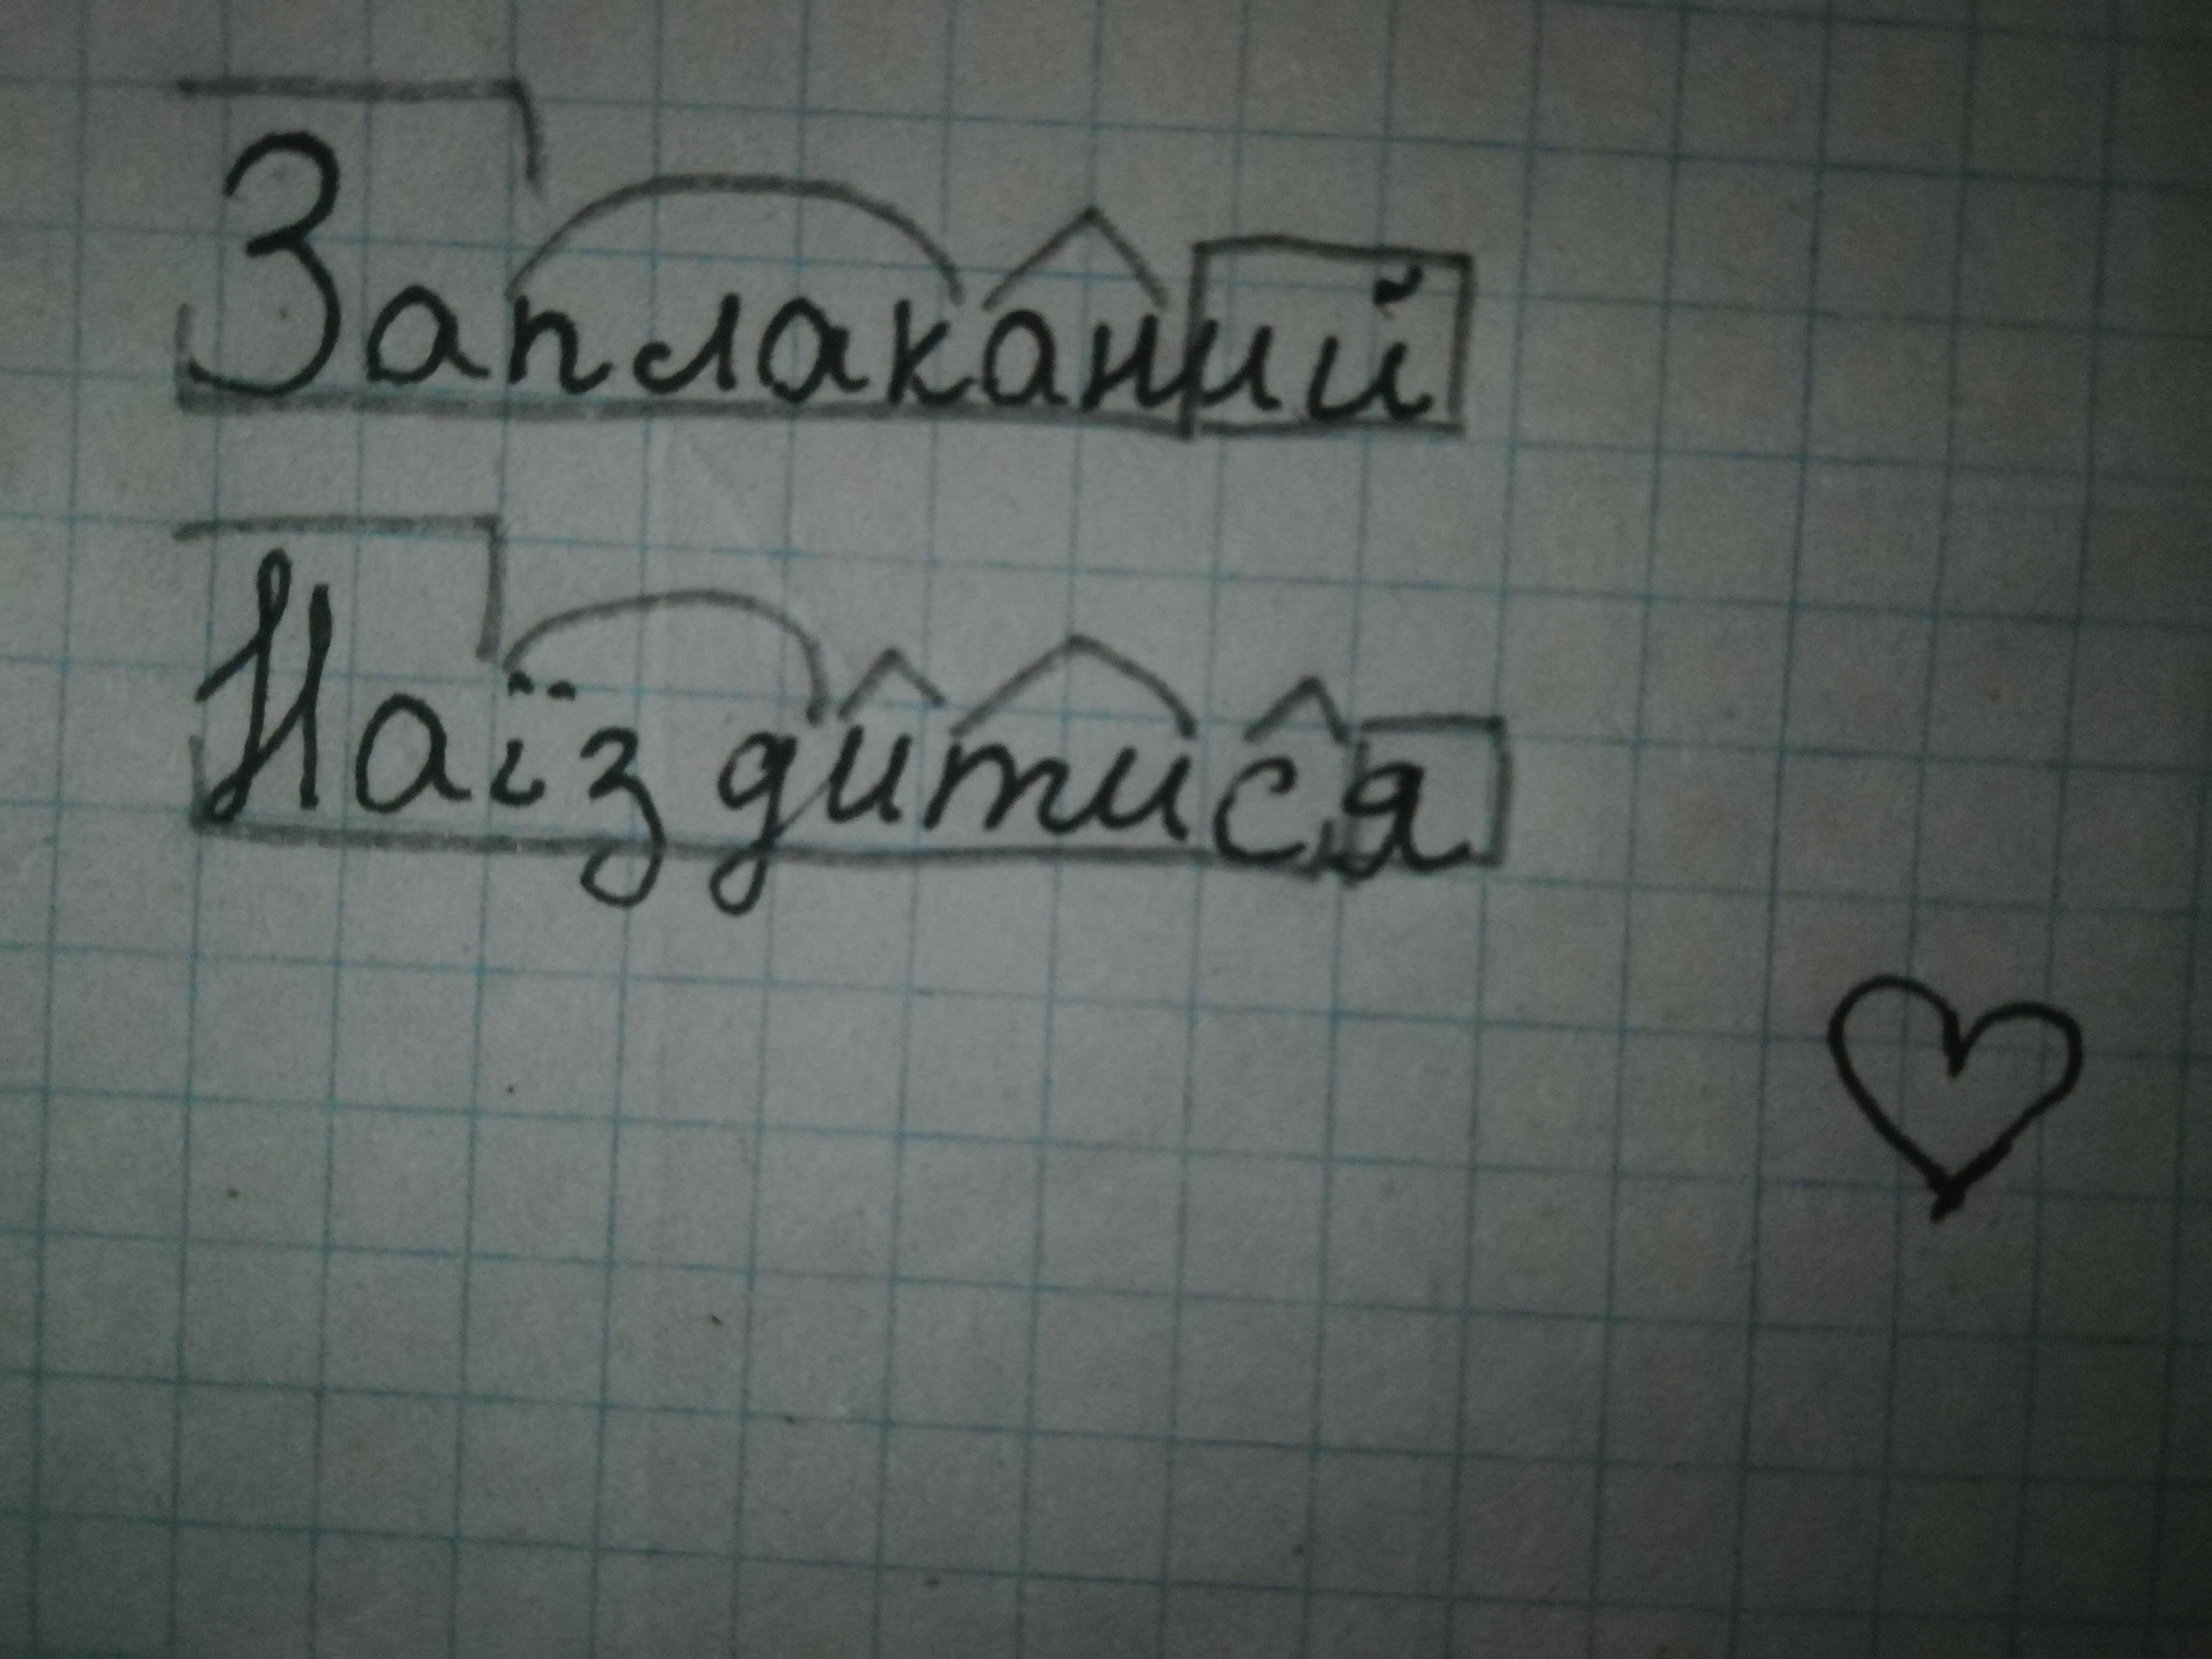 Заплаканий
Наїздитися